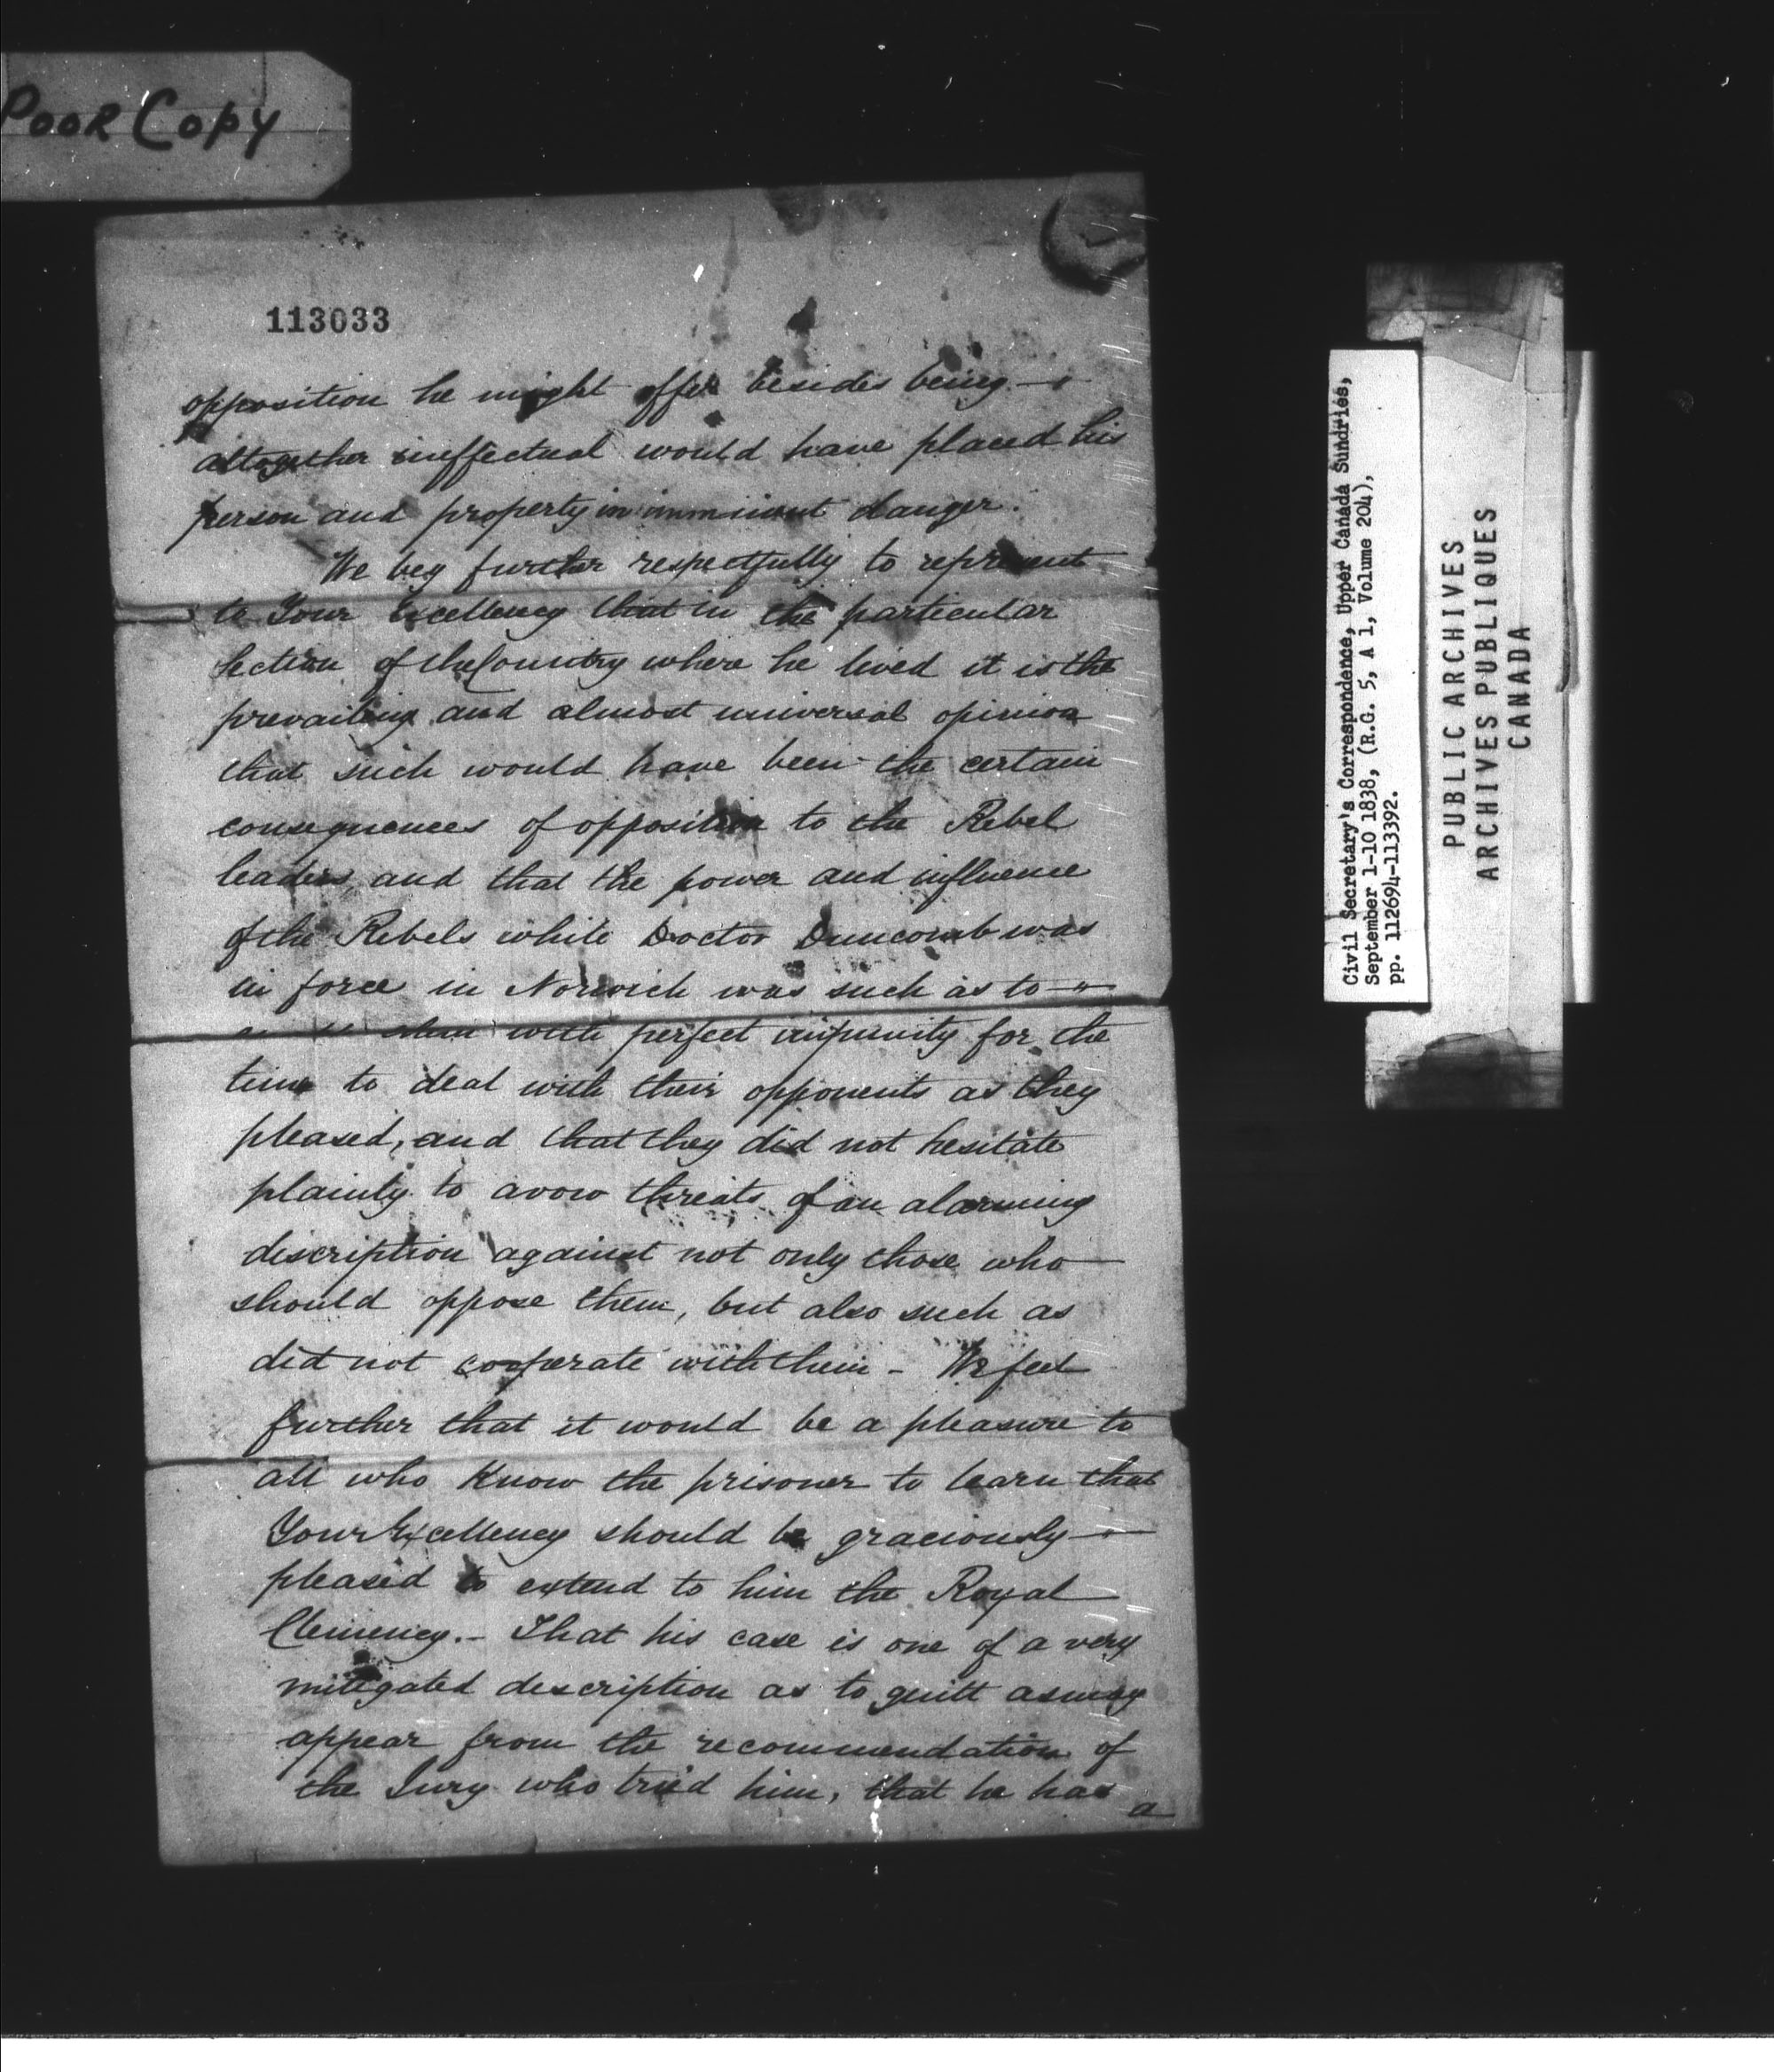 Poor Copy
113033
opposition he might offer besides being
altogether ineffectual would have placed his
person and property in imminent danger.
We beg further respectfully to represent
to Your Excellency that in the particular
Section of the Country where he lived it is the
prevailing and almost universal opinion
that such would have been the certain
consequences of opposition to the Rebel
leaders, and that the power and influence
of the Rebels while Doctor Duncomb was
in force in Norwich was such as to
them with perfect impunity for the
time to deal with their opponents as they
pleased, and that they did not hesitate
plainly to avow threats of an alarming
discription against not only those who
should oppose them, but also such as
did not cooperate with them - We feel
further that it would be a pleasure to
all who know the prisoner to learn that
Your Excellency should be graciously
pleased to extend to him the Royal
Clemency. - That his case is one of a very
mitigated description as to guilt as may
appear from the recommendation of
the Jury who tried him, that he has
a
Civil Secretary's Correspondence, Upper Canada Sundries,
September 1-10 1838, (R.G. 5, A 1, Volume 204),
pp. 112694-113392.
PUBLIC ARCHIVES
ARCHIVES PUBLIQUES
CANADA